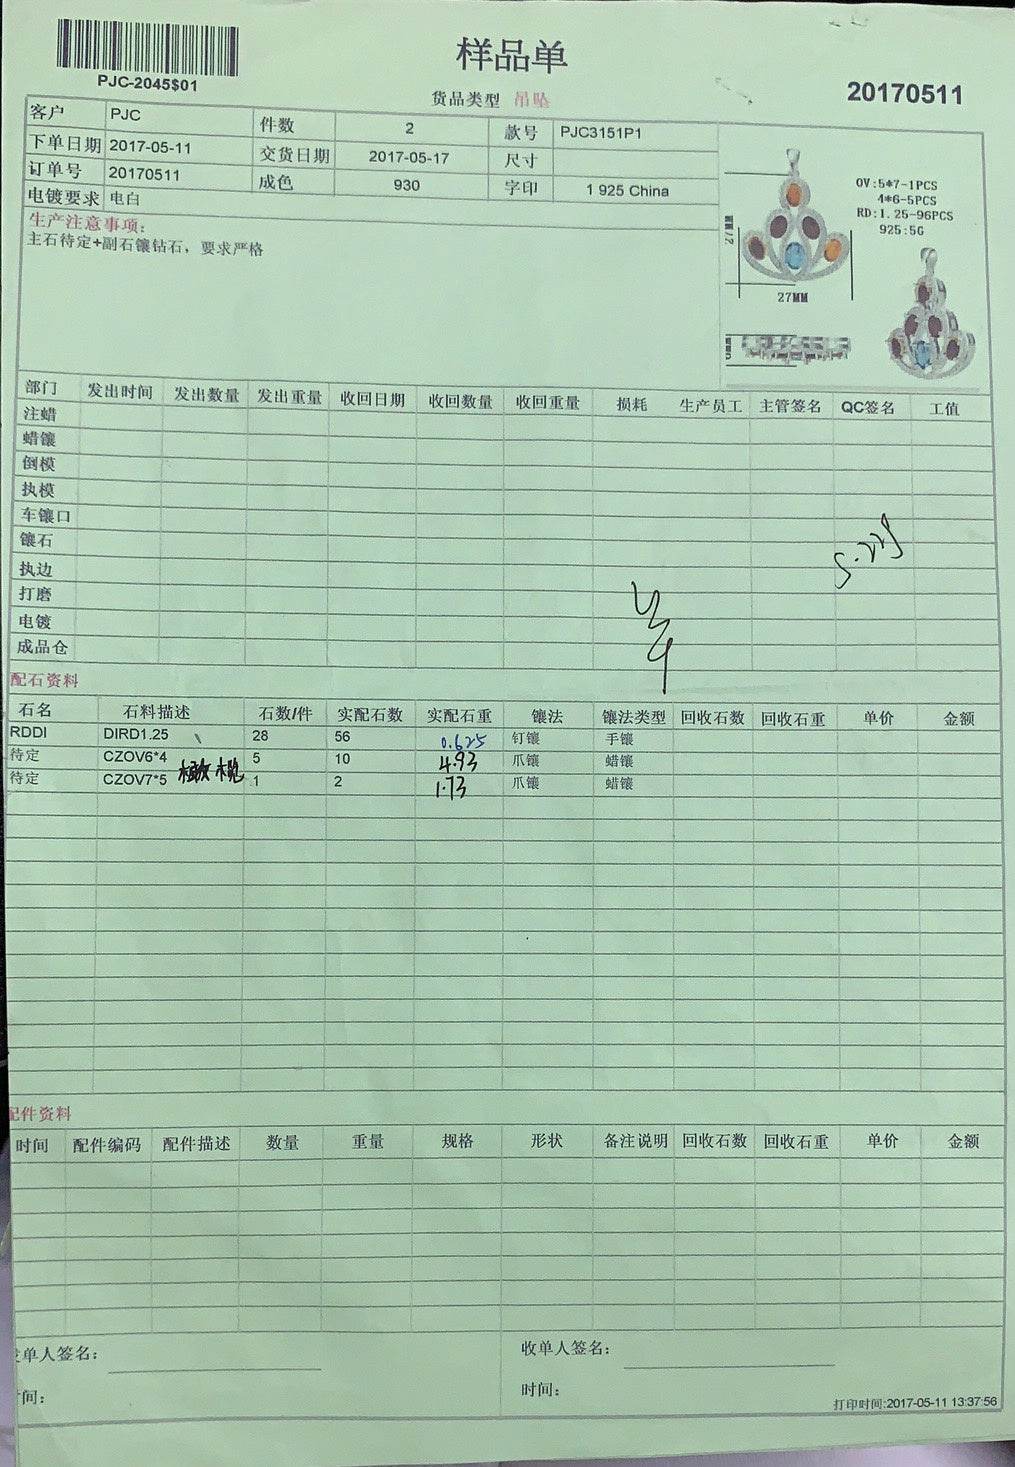 样品单
PJC-2045$01
货品类型 吊坠
20170511
客户 PJC 件数 2 款号 PJC3151P1
下单日期 2017-05-11 交货日期 2017-05-17 尺寸
订单号 20170511 成色 930 字印 1 925 China
电镀要求 电白
生产注意事项：
主石待定+副石镶钻石，要求严格
OV:5*7-1PCS
4*6-5PCS
RD:1.25-96PCS
925:5G
27MM
部门 发出时间 发出数量 发出重量 收回日期 收回数量 收回重量 损耗 生产员工 主管签名 QC签名 工值
注蜡
蜡镶
倒模
执模
车镶口
镶石
执边
打磨
电镀
成品仓
配石资料
石名 石料描述 石数/件 实配石数 实配石重 镶法 镶法类型 回收石数 回收石重 单价 金额
RDDI DIRD1.25 28 56 0.625 钉镶 手镶
待定 CZOV6*4 5 10 4.93 爪镶 蜡镶
橄榄
待定 CZOV7*5 1 2 1.73 爪镶 蜡镶
配件资料
时间 配件编码 配件描述 数量 重量 规格 形状 备注说明 回收石数 回收石重 单价 金额
单人签名： 收单人签名：
间： 时间：
打印时间:2017-05-11 13:37:56